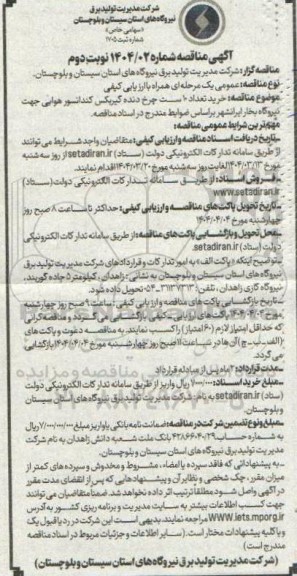 شرکت مدیریت تولید برق
نیروگاه های استان سیستان و بلوچستان
(سهامی خاص)
شماره ثبت ۱۷۰۵
آگهی مناقصه شماره ۱۴۰۴/۰۲ نوبت دوم
مناقصه گزار: شرکت مدیریت تولید برق نیروگاه های استان سیستان و بلوچستان.
نوع مناقصه: عمومی یک مرحله ای همراه با ارزیابی کیفی
موضوع مناقصه: خرید تعداد ۱۰ ست چرخ دنده گیربکس کندانسور هوایی جهت
نیروگاه بخار ایرانشهر براساس ضوابط مندرج در اسناد مناقصه.
مهم ترین شرایط عمومی مناقصه:
ـ تاریخ دریافت اسناد مناقصه و ارزیابی کیفی: متقاضیان واجد شرایط می توانند
از طریق سامانه تدارکات الکترونیکی دولت (ستاد) setadiran.ir از روز سه شنبه
مورخ ۱۴۰۴/۰۳/۱۳ لغایت روز سه شنبه مورخ ۱۴۰۴/۰۳/۲۰ اقدام نمایند.
ـ فروش اسناد: از طریق سامانه تدارکات الکترونیکی دولت (ستاد)
www.setadiran.ir
ـ تاریخ تحویل پاکت های مناقصه و ارزیابی کیفی: حداکثر تا ساعت ۸ صبح روز
چهارشنبه مورخ ۱۴۰۴/۰۴/۰۴
ـ محل تحویل و بازگشایی پاکت های مناقصه: از طریق سامانه تدارکات الکترونیکی
دولت (ستاد) setadiran.ir.
با توضیح اینکه «پاکت الف» به امور تدارکات و قراردادهای شرکت مدیریت تولید برق
نیروگاه های استان سیستان و بلوچستان به نشانی: زاهدان، کیلومتر ۵ جاده گوربند،
نیروگاه گازی زاهدان، تلفن: ۳۱۱۳۷۳۱۳-۰۵۴ تحویل داده شود.
ـ تاریخ بازگشایی پاکت های مناقصه و ارزیابی کیفی: ساعت ۹ صبح روز چهارشنبه
مورخ ۱۴۰۴/۰۴/۰۴ پاکت های ارزیابی کیفی بازگشایی می گردد و مناقصه گرانی
که حداقل امتیاز لازم (۶۰ امتیاز) را کسب نمایند. به مناقصه دعوت و پاکت های
(الف ـ ب ـ ج) آن ها در ساعت ۱۱ صبح روز چهارشنبه مورخ ۱۴۰۴/۰۴/۰۴ بازگشایی
می گردد.
ـ مدت قرارداد: ۲ ماه پس از مبادله قرارداد
ـ مبلغ خرید اسناد: ۷۰۰/۰۰۰ ریال واریز از طریق سامانه تدارکات الکترونیکی دولت
(ستاد) setadiran.ir به نام شرکت مدیریت تولید برق نیروگاه های استان سیستان
و بلوچستان.
ـ مبلغ و نوع تضمین شرکت در مناقصه: ضمانت نامه بانکی یا واریز مبلغ ریال
به شماره حساب بانک ملت شعبه دانش زاهدان به نام شرکت
مدیریت تولید برق نیروگاه های استان سیستان و بلوچستان.
ـ به پیشنهاداتی که فاقد سپرده یا امضاء، مشروط و مخدوش و سپرده های کمتر از
میزان مقرر، چک شخصی و نظایر آن و پیشنهادهایی که پس از انقضای مدت مقرر
در آگهی واصل شود مطلقا ترتیب اثر داده نخواهد شد. ضمنا متقاضیان می توانند
جهت کسب اطلاعات بیشتر به سایت مدیریت و برنامه ریزی کشور به آدرس
WWW.iets.mporg.ir مراجعه نمایند. بدیهی است این شرکت در رد یا قبول یک
و یا کلیه پیشنهادات مختار است. (سایر اطلاعات و جزئیات مربوط در اسناد مناقصه
مندرج است)
(شرکت مدیریت تولید برق نیروگاه های استان سیستان و بلوچستان)